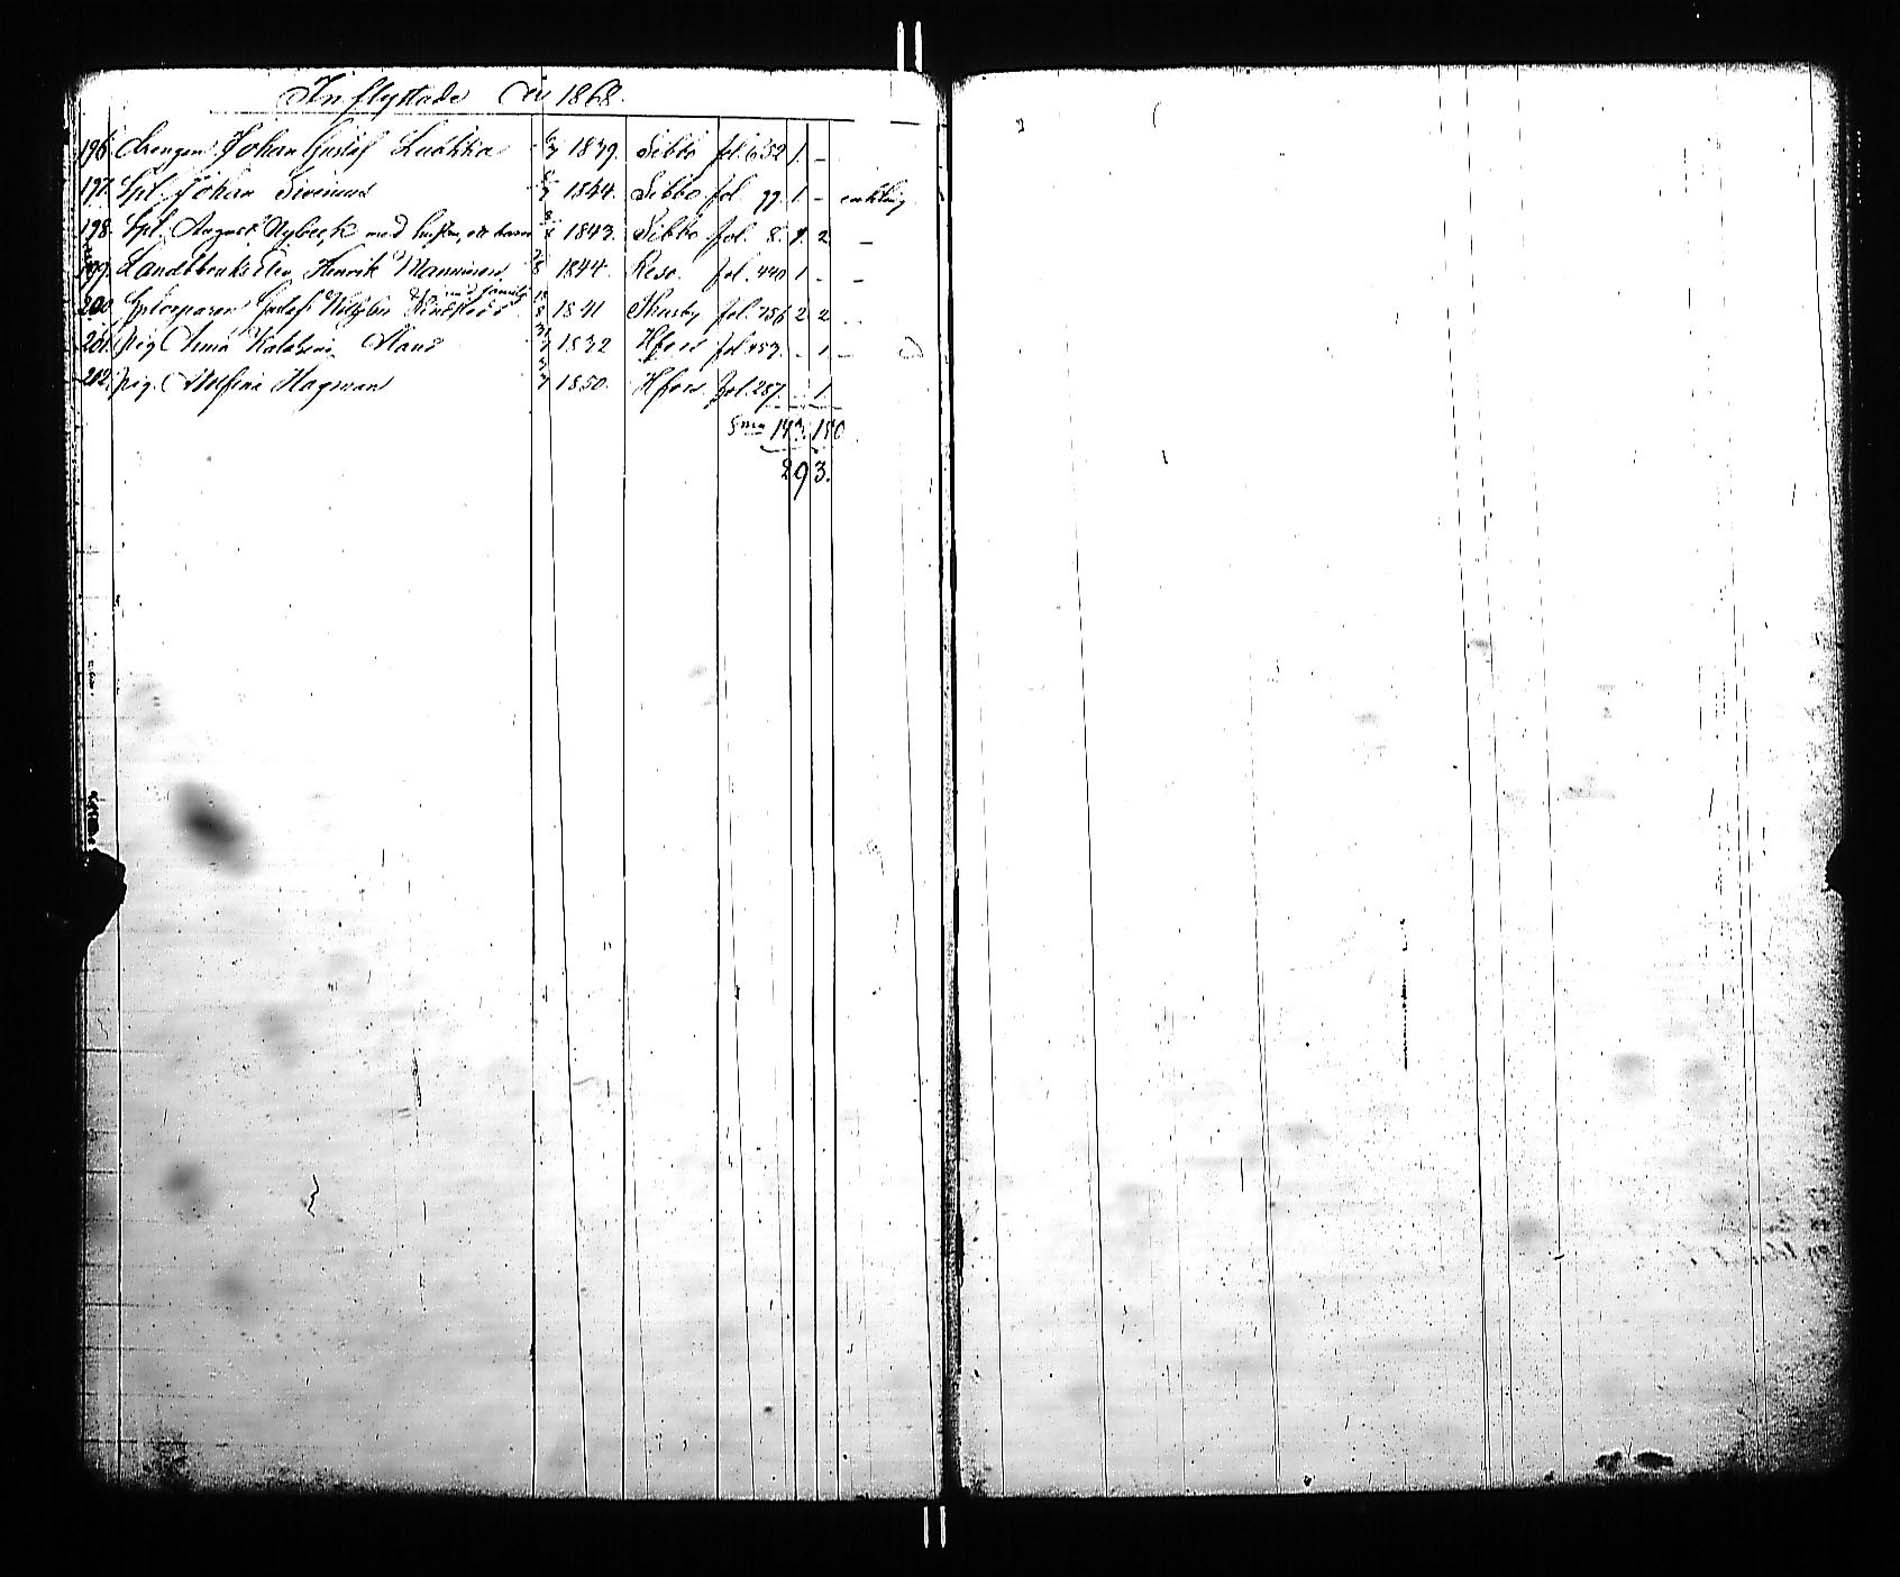 Inflyttade År 1868.
196. Drengen Johan Gustaf Luukka 1839. Sibbo fol. 652 1. –
197. Spl. Johan Sirenius 1844. Sibbo fol. 99. 1. – enkling
198. Spl. August Nybeck med hustru, ett barn 1843. Sibbo fol. 8. 1. 2. –
199. Landtbruks Elev Henrik Manninen 1844. Reso. fol. 440 1 – –
200. Gustaf med familj 1841 Thusby fol. 756 2 2
201. Pig. Anna 1832 Hfors fol. 453. – 1. –
202. Pig. Adolfina Hagman 1850. Hfors fol. 287. 1.
Sma 143. 150
293.